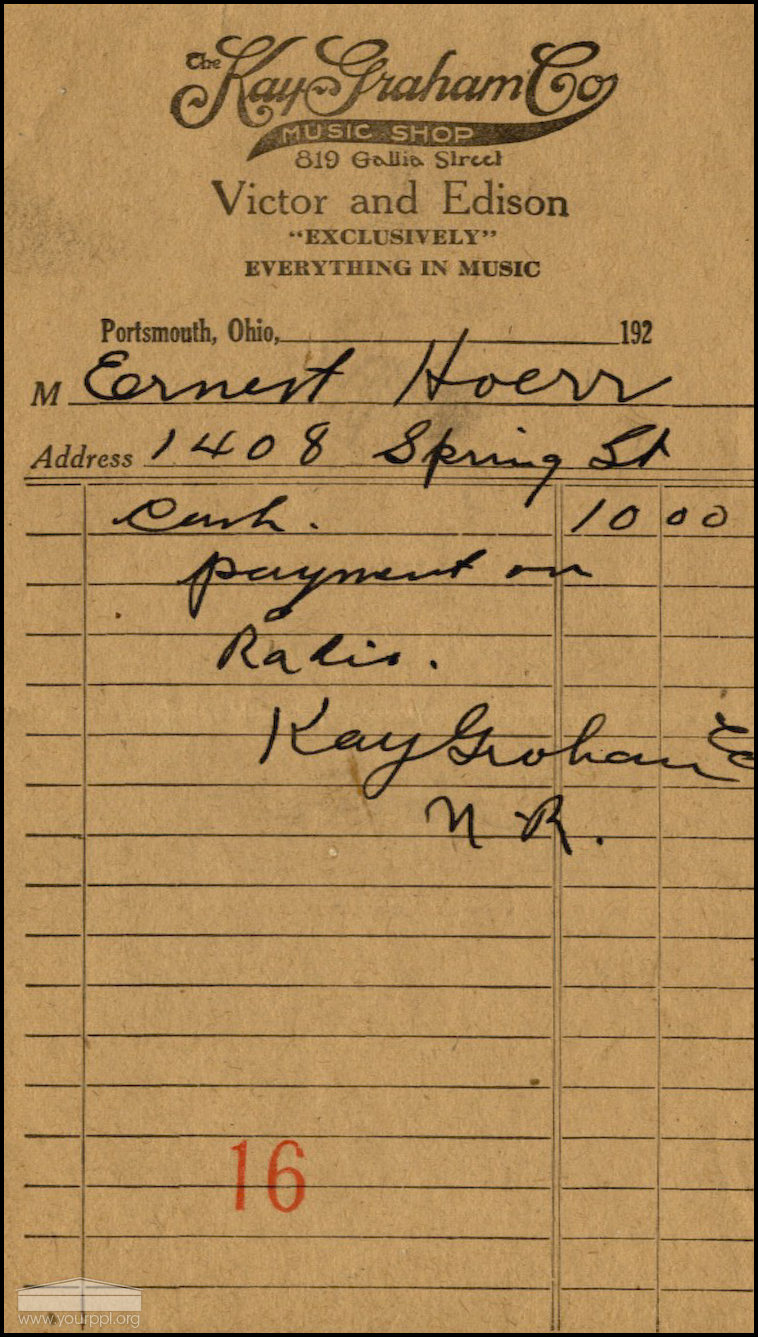 The Kay Graham Co
MUSIC SHOP
819 Gallia Street
Victor and Edison
"EXCLUSIVELY"
EVERYTHING IN MUSIC
Portsmouth, Ohio, 192
M Ernest Hoerr
Address 1408 Spring St
Cash. 10 00
payment on
Radio.
Kay Graham Co
N.R.
16
www.yourppl.org